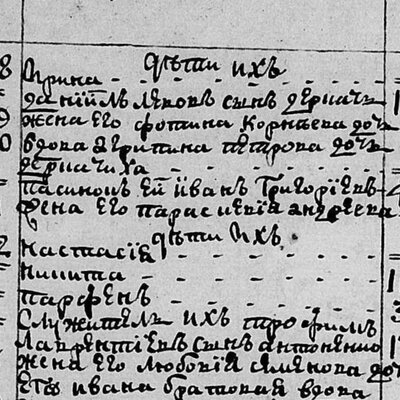 дѣти ихъ
8 Ирина
даніилъ яковъ сынъ дергачъ 1
9 жена его фотина корнѣева дочь
0 вдова агрипина петрова дочь
дергачиха
пасинокъ ей иванъ григоріевъ
жена его параскевія андреева
дѣти ихъ
2 настасія
никита 1
парфенъ
служитель ихъ трофимъ
лаврентіевъ сынъ антоненко
жена его любовія семенова доч
его ивана братовая вдова